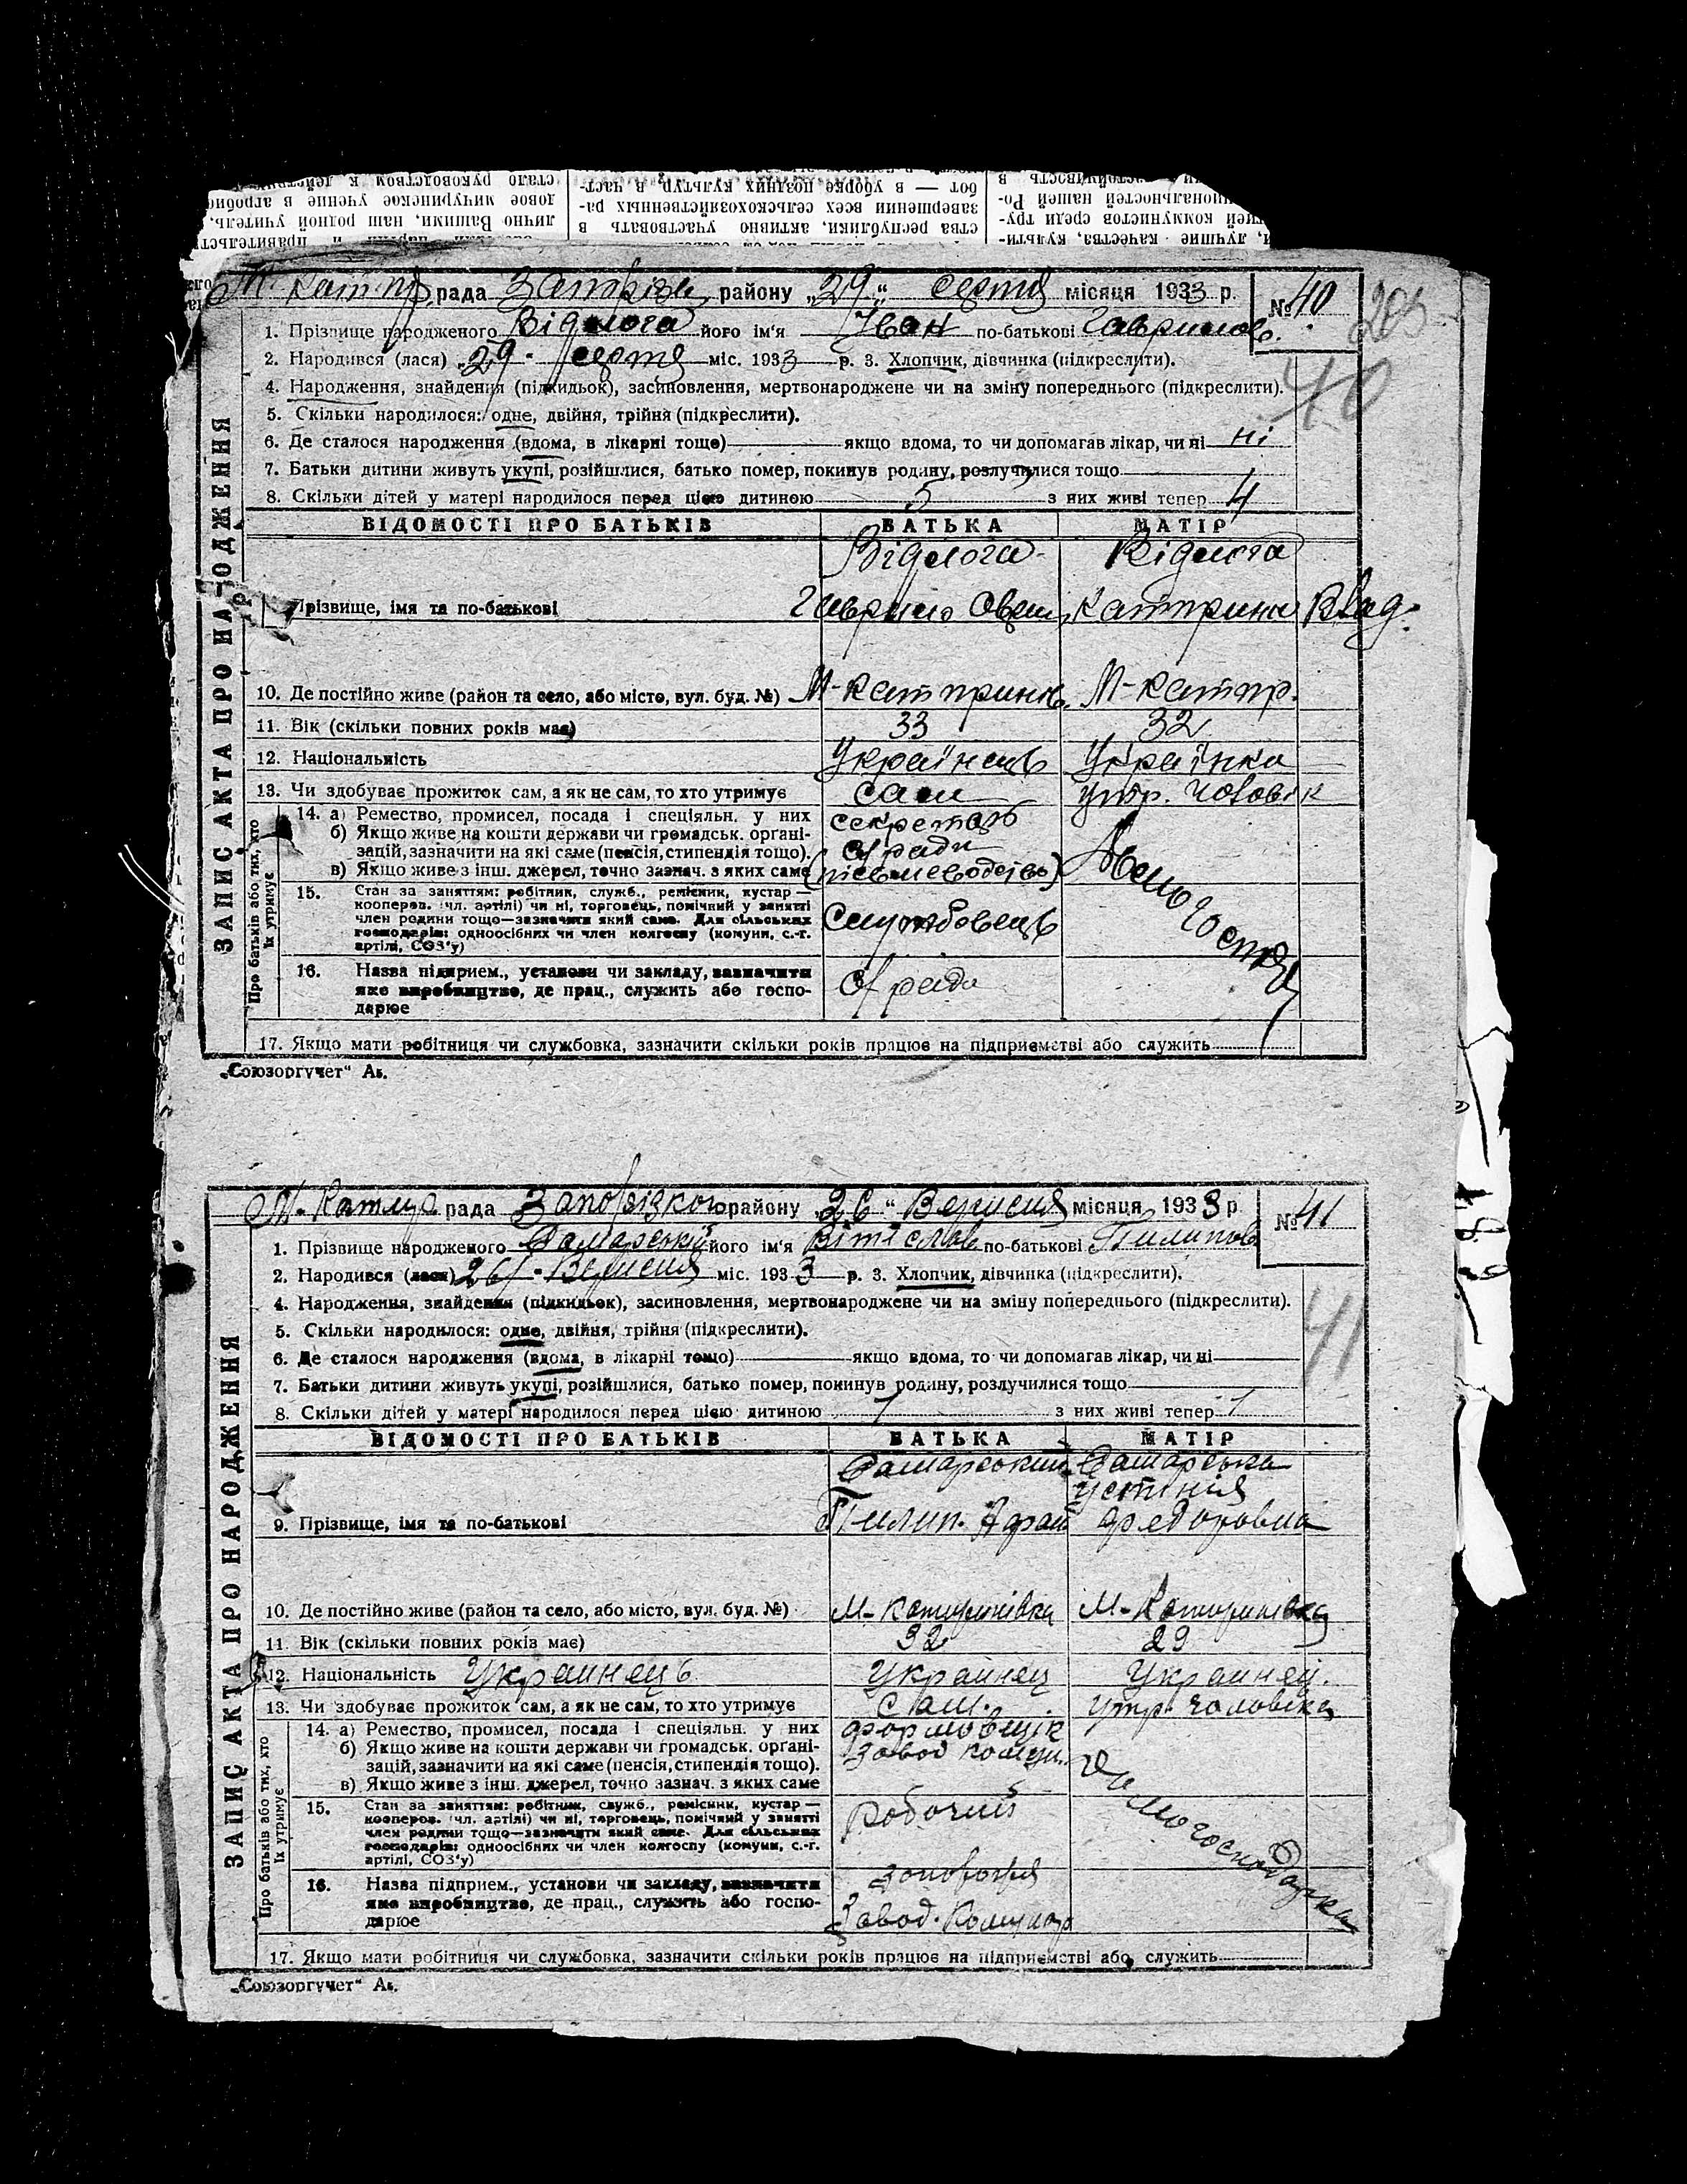 М. Катпр. рада Запоріз. району „29“ серпня місяця 1933 р. № 40
203
1. Прізвище народженого Відлога його ім'я Іван по-батькові Гаврилов.
2. Народився (лася) „29“ серпня міс. 1933 р. 3. Хлопчик, дівчинка (підкреслити).
40
4. Народження, знайдення (підкидьок), засиновлення, мертвонароджене чи на зміну попереднього (підкреслити).
5. Скільки народилося: одне, двійня, трійня (підкреслити).
6. Де сталося народження (вдома, в лікарні тощо) якщо вдома, то чи допомагав лікар, чи ні ні
7. Батьки дитини живуть укупі, розійшлися, батько помер, покинув родину, розлучилися тощо
8. Скільки дітей у матері народилося перед цією дитиною 5 з них живі тепер 4
ЗАПИС АКТА ПРО НАРОДЖЕННЯ
ВІДОМОСТІ ПРО БАТЬКІВ БАТЬКА МАТІР
Відлога Відлога
Прізвище, імя та по-батькові Гаврило Катприна Влад.
10. Де постійно живе (район та село, або місто, вул. буд. №) М-Катпринів. М-Катпр.
11. Вік (скільки повних років має) 33 32
12. Національність Українець Українка
13. Чи здобуває прожиток сам, а як не сам, то хто утримує сам утр. чоловік
Про батьків або тих, хто їх утримує
14. а) Ремество, промисел, посада і спеціяльн. у них секретарь
б) Якщо живе на кошти держави чи громадськ. органі-
зацій, зазначити на які саме (пенсія, стипендія тощо). с/ради
в) Якщо живе з інш. джерел, точно зазнач. з яких саме (письмоводство)
15. Стан за заняттям: робітник, служб., ремісник, кустар —
кооперов. (чл. артілі) чи ні, торговець, помічний у занятті
член родини тощо—зазначити який саме. Для сільських Службовець
господарів: одноосібних чи член колгоспу (комуни, с.-г.
артілі, СОЗ'у)
16. Назва підприєм., установи чи закладу, зазначити
яке виробництво, де прац., служить або госпо- с/рада
дарює
17. Якщо мати робітниця чи службовка, зазначити скільки років працює на підприємстві або служить
„Союзоргучет“ Аь.
М. Катпр рада Запорізького району „26“ Вересня місяця 1933 р. № 41
1. Прізвище народженого Самарський його ім'я Вітіслав по-батькові Пилипов
2. Народився (лася) 26 Вересня міс. 1933 р. 3. Хлопчик, дівчинка (підкреслити).
4. Народження, знайдення (підкидьок), засиновлення, мертвонароджене чи на зміну попереднього (підкреслити).
41
5. Скільки народилося: одне, двійня, трійня (підкреслити).
6. Де сталося народження (вдома, в лікарні тощо) якщо вдома, то чи допомагав лікар, чи ні
7. Батьки дитини живуть укупі, розійшлися, батько помер, покинув родину, розлучилися тощо
8. Скільки дітей у матері народилося перед цією дитиною 1 з них живі тепер 1
ЗАПИС АКТА ПРО НАРОДЖЕННЯ
ВІДОМОСТІ ПРО БАТЬКІВ БАТЬКА МАТІР
Самарський Самарська
Устінія
9. Прізвище, імя та по-батькові Пилип. Федоровна
10. Де постійно живе (район та село, або місто, вул. буд. №) М-Катеринівка М-Катеринівка
11. Вік (скільки повних років має) 32 29
12. Національність Украинець Украинец Украинец.
13. Чи здобуває прожиток сам, а як не сам, то хто утримує сам. утр. чоловіка
Про батьків або тих, хто їх утримує
14. а) Ремество, промисел, посада і спеціяльн. у них формовщик
б) Якщо живе на кошти держави чи громадськ. органі- завод Комун.
зацій, зазначити на які саме (пенсія, стипендія тощо).
в) Якщо живе з інш. джерел, точно зазнач. з яких саме
Домогосподарка
15. Стан за заняттям: робітник, служб., ремісник, кустар —
кооперов. (чл. артілі) чи ні, торговець, помічний у занятті Робочий
член родини тощо—зазначити який саме. Для сільських
господарів: одноосібних чи член колгоспу (комуни, с.-г.
артілі, СОЗ'у)
16. Назва підприєм., установи чи закладу, зазначити Запоріжя
яке виробництво, де прац., служить або госпо-
дарює Завод. Комунар
17. Якщо мати робітниця чи службовка, зазначити скільки років працює на підприємстві або служить
„Союзоргучет“ Аь.